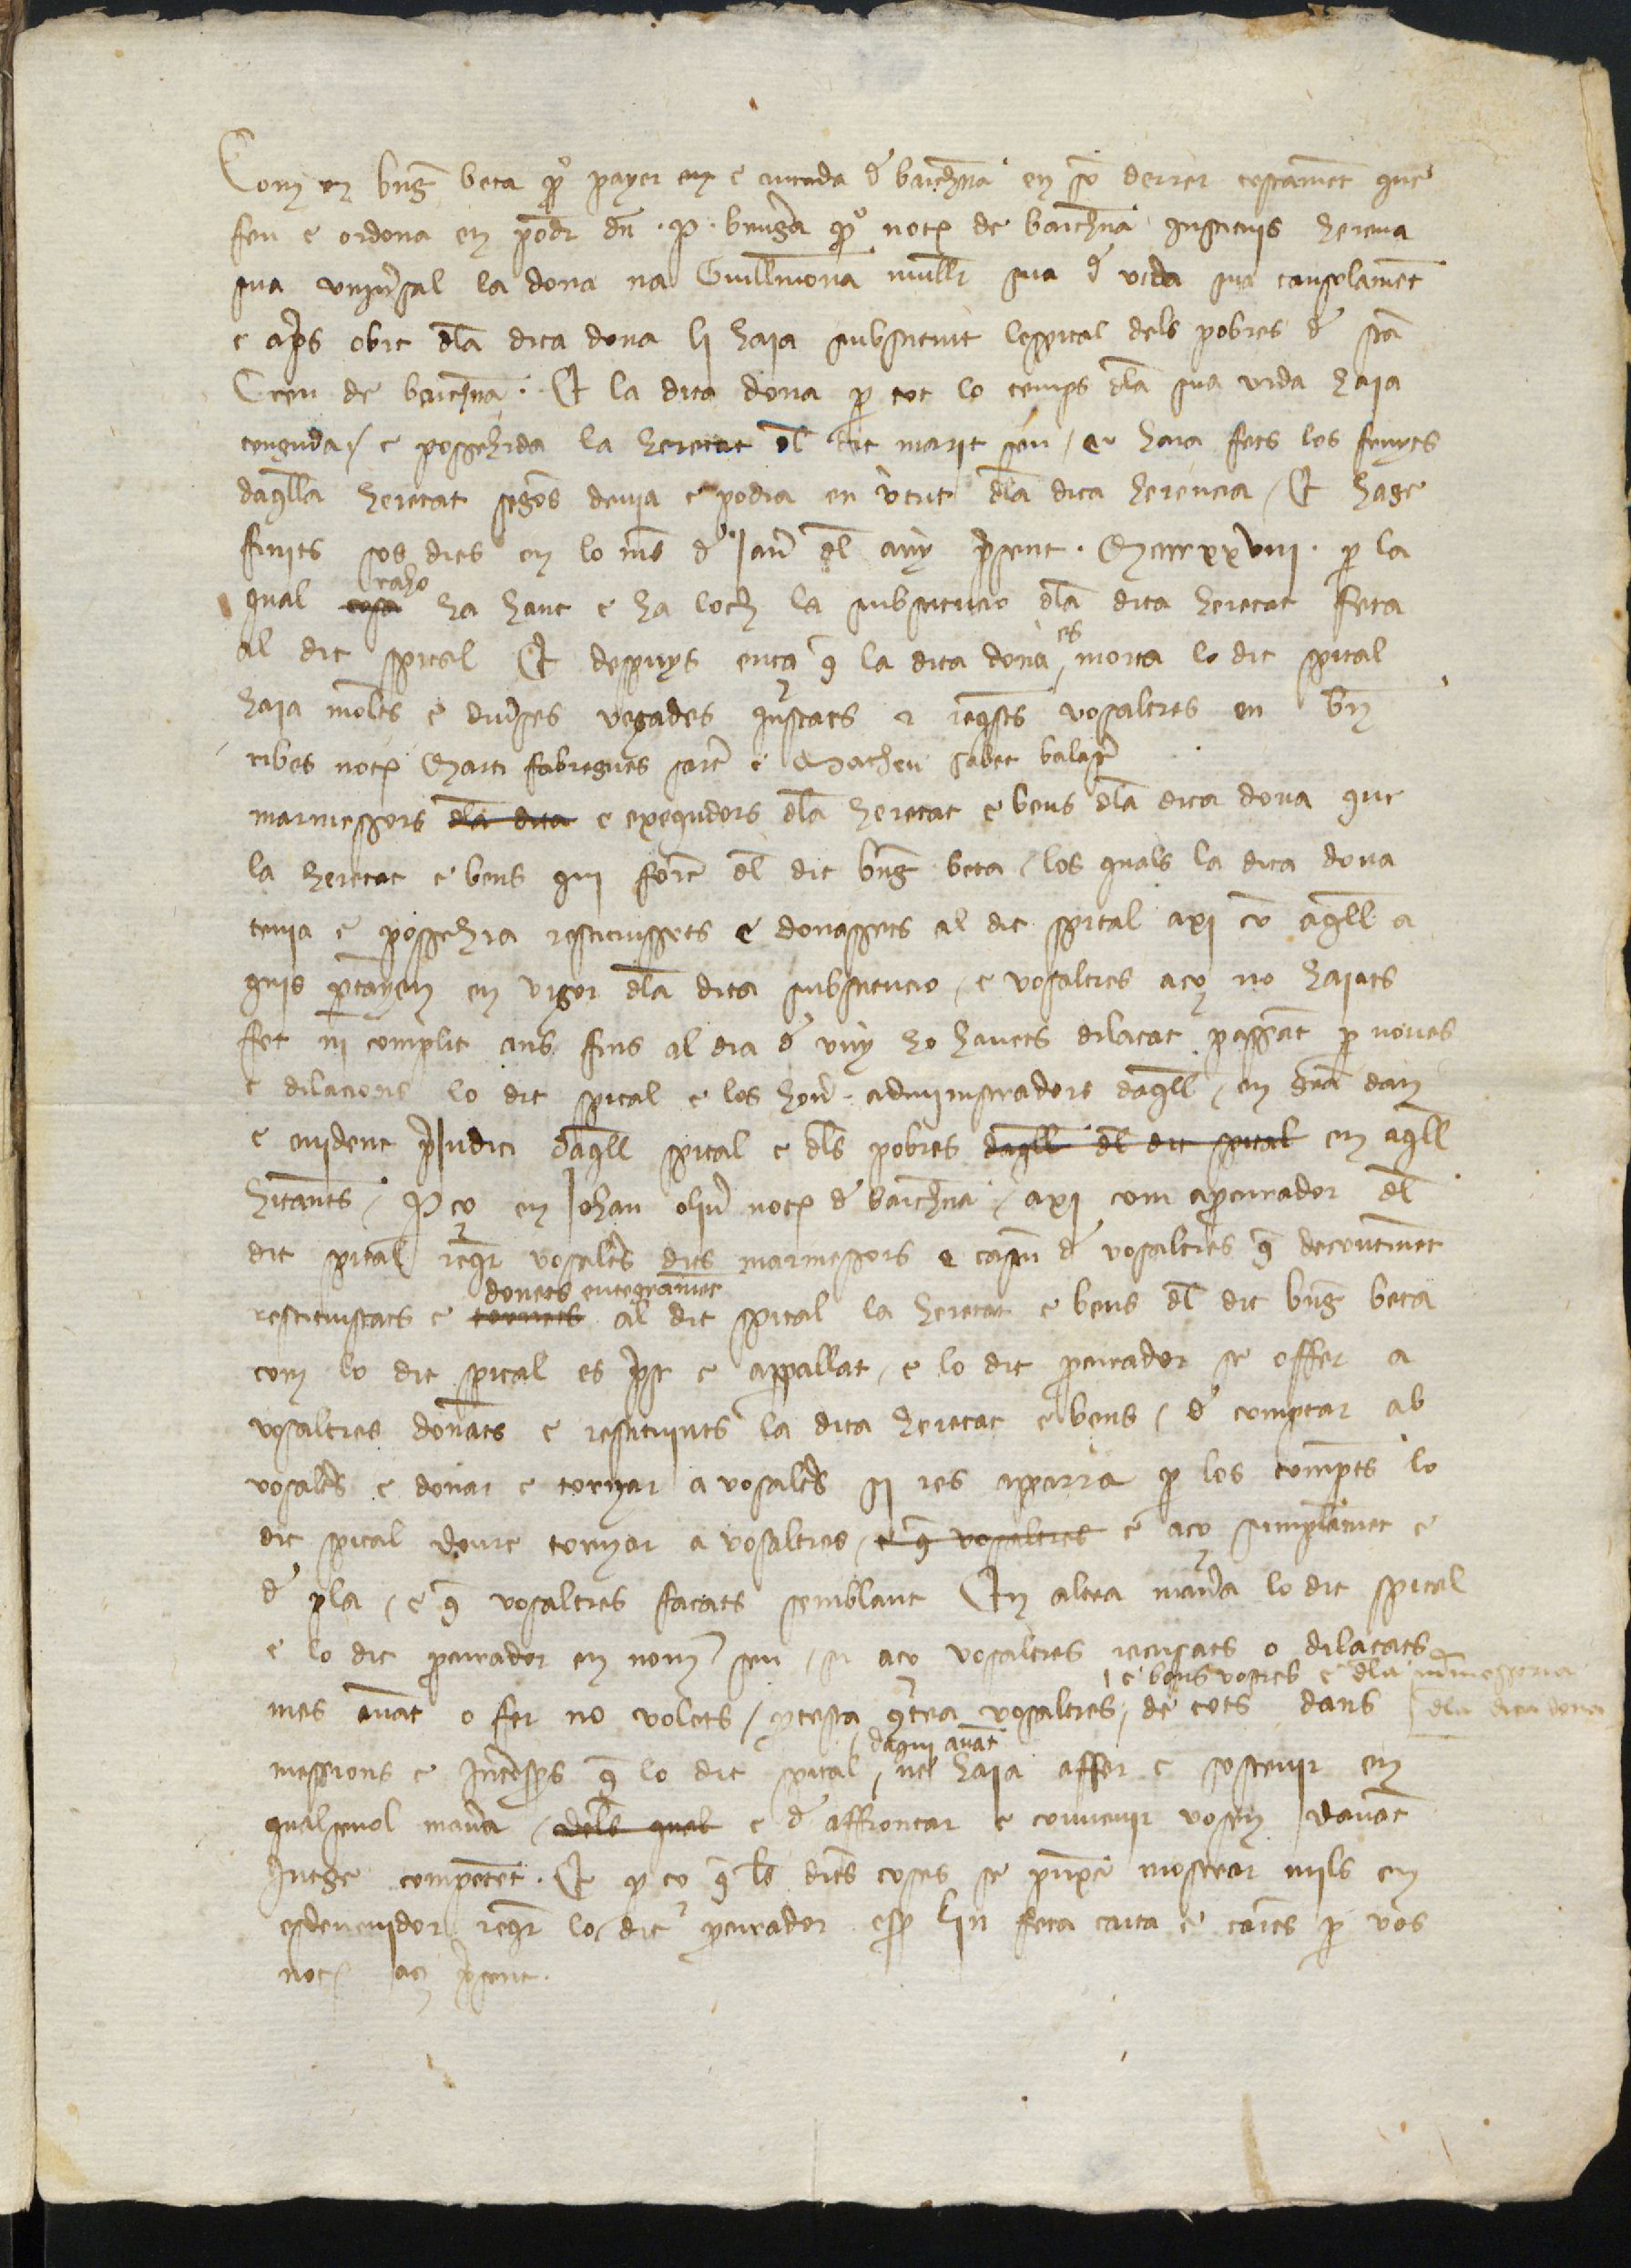 Com en bng̃ beta p̃o payer e ciutada d̃ barchña en so derrer testamẽt que
feu e ordona en podr̃ dñ . p . bengr̃a p̃o not̃ de barchña instituis hereva
sua univ̉sal la dona na Guillmona mullr̃ sua d̃ vida sua tansolamẽt
e ap̃s obit dl̃a dita dona li haja substituit lespital dels pobres d̃ sc̃a
Creu de barchña . Et la dita dona p̱ tot lo temps dl̃a sua vida haja
tenguda / e possehida la heretat dl̃ dit marit seu / e haia fets los fruyts
daq̃lla heretat segõs devia e podia en v̉tut dl̃a dita herencia / Et hage
finits sos dies en lo mes d̃ Jañ dl̃ any p̃sent . Mccccxxviii . p̱ la
qual cosa raho ha haut e ha loch la substitucio dl̃a dita heretat feta
al dit spital Et despuys ença q̃ la dita dona es morta lo dit spital
haja moltes e div̉ses vegades instats e req̃sts vosaltres en bñ
ribes not̃ Marti fabregues sart̃ e Matheu sabet balast̃
marmessors dl̃a dita e exequdors dl̃a heretat e bens dl̃a dita dona que
la heretat e bens qui forẽ dl̃ dit bng̃ beta / los quals la dita dona
tenia e possehia restituissets e donassets al dit spital axi cõ aq̃ll a
quis p̱tanyen en vigor dl̃a dita substitucio / e vosaltres aço no haiats
fet ni complit ans fins al dia d̃ vuy ho havets dilatat passãt p̱ noves
e dilacions lo dit spital e los hon̉ . administradors daq̃ll / en grã dan
e evident p̃judici daq̃ll spital e dl̃s pobres daq̃ll dl̃ dit spital en aq̃ll
hitants / P ço en Johan oliv̉ not̃ d̃ barchña / axi com a p̱curador dl̃
dit spital req̃r vosaltr̃s dits marmessors e casũ d̃ vosaltres q̃ decõtinẽt
restituiscats e tornets donets entegramẽt al dit spital la heretat e bens dl̃ dit bng̃ beta
com lo dit spital es p̃st e appallat / e lo dit p̱curador se offer a
vosaltres donãts e restituints la dita heretat e bens / d̃ comptar ab
vosaltr̃s e donar e tornar a vosaltr̃s si res apparra p̱ los comptes lo
dit spital deure tornar a vosaltres / e q̃ vosaltres e aço simplamẽt e
d̃ pla / e q̃ vosaltres façats semblant En altra man̉a lo dit spital
e lo dit p̱curador en nom seu / si aço vosaltres recusats o dilatats
mes avãt o fer no volets / p̱testa cõtra vosaltres / e bens vostres e dl̃a mr̃messoria dl̃a dita dona de tots dans
messions e int̃esses q̃ lo dit spital / daqui avãt ne haia affer e sostenir en
qualsevol man̉a / dels quals e d̃ affrontar e convenir vosen davãt
Jutge competẽt . Et p̱ ço q̃ les dites coses se puxẽ mostrar mils en
esdevenidor req̃r lo dit p̱curador esser lin feta carta e cartes p̱ vos
not̃ aci p̃sent .